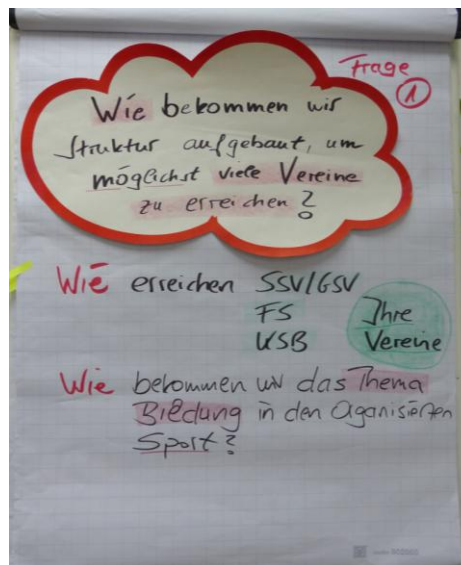 Frage
1
Wie bekommen wir
Struktur aufgebaut, um
möglichst viele Vereine
zu erreichen?
Wie erreichen SSV/GSV
FS Ihre
KSB Vereine
Wie bekommen wir das Thema
Bildung in den Oganisierten
Sport?